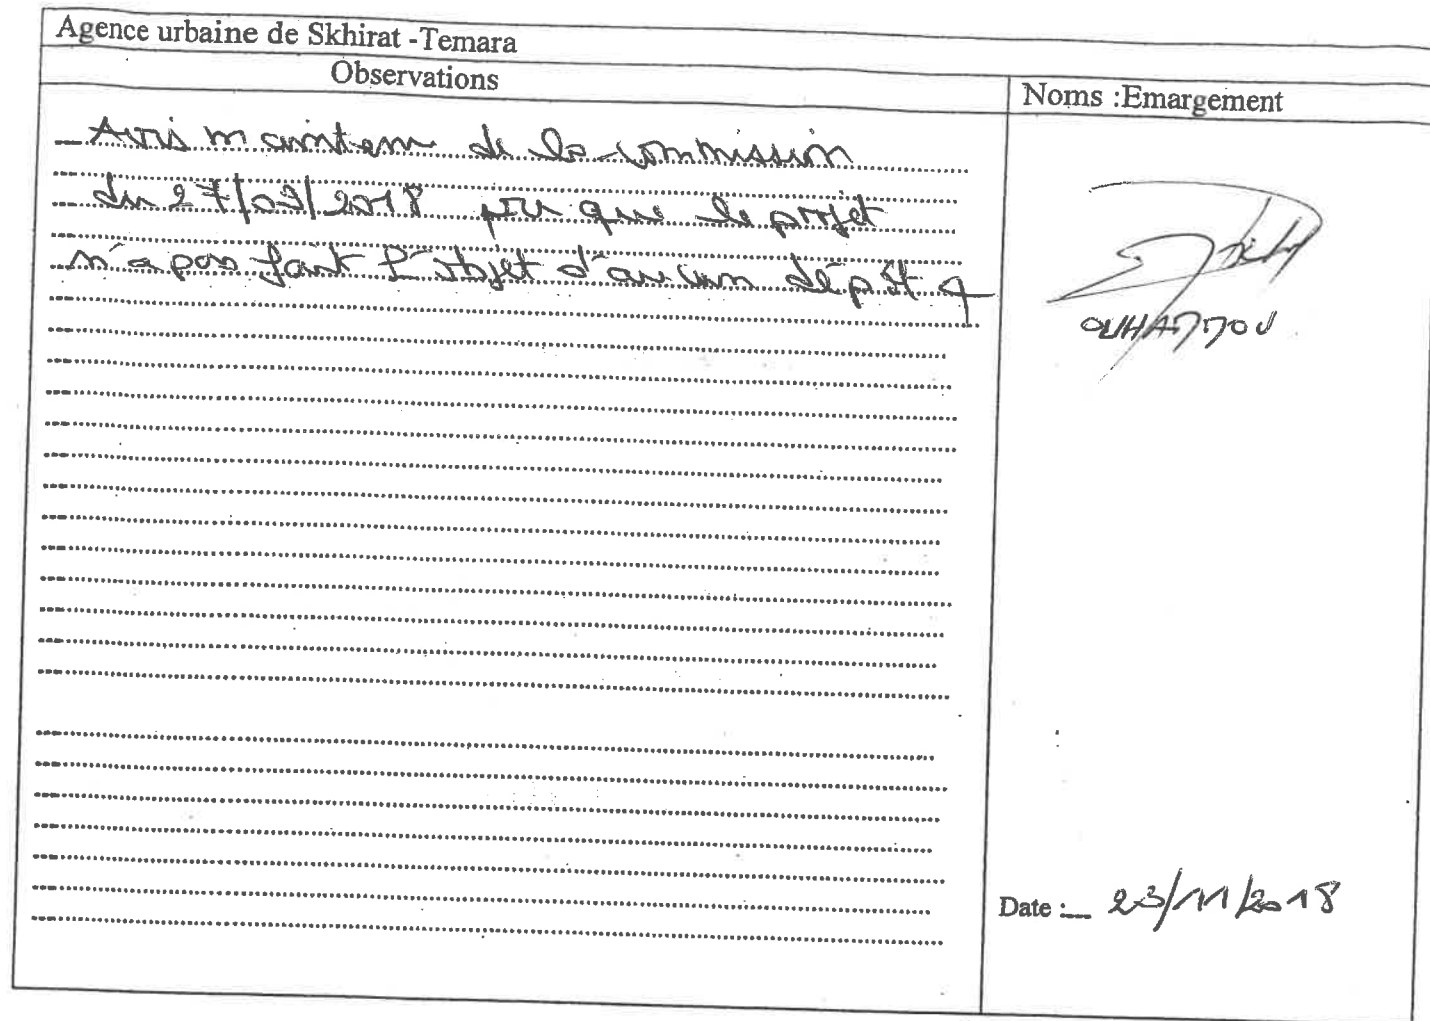 Agence urbaine de Skhirat -Temara
Observations
Noms :Emargement
- Avis maintenu de la commission
du 27/03/2018 vu que le projet
n'a pas fait l'objet d'aucun dépôt
OUHAMMOU
Date : 23/11/2018